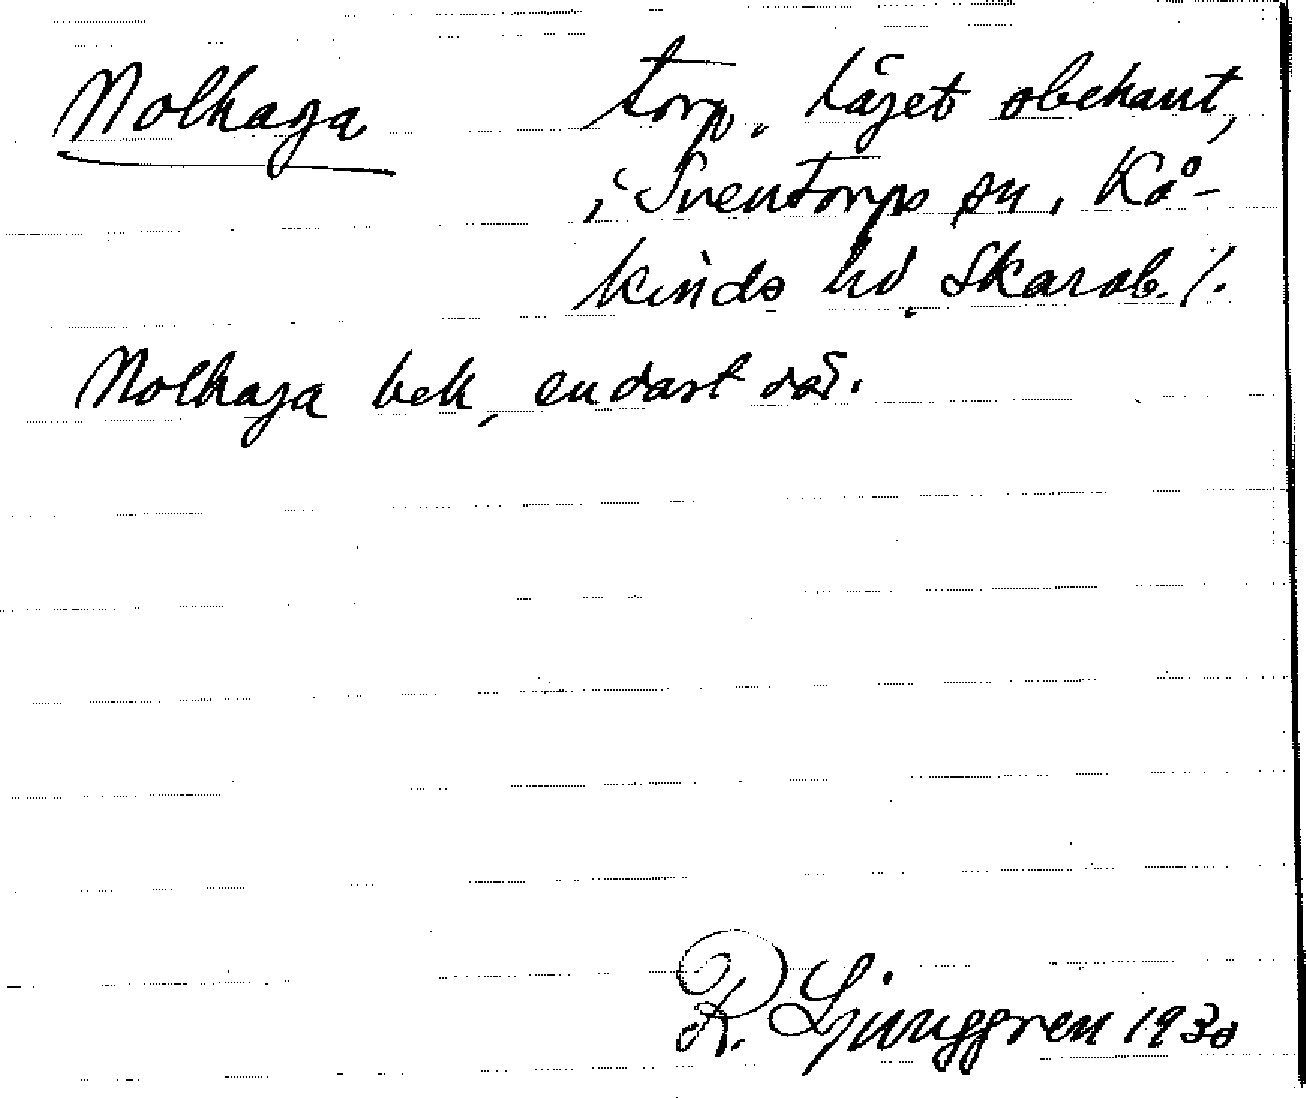 Nolhaga torp. Läget obekant,
i Sventorps sn, Kå-
kinds hd. Skarab. l.
Nolhaga bek, endast där.
R. Ljunggren 1930